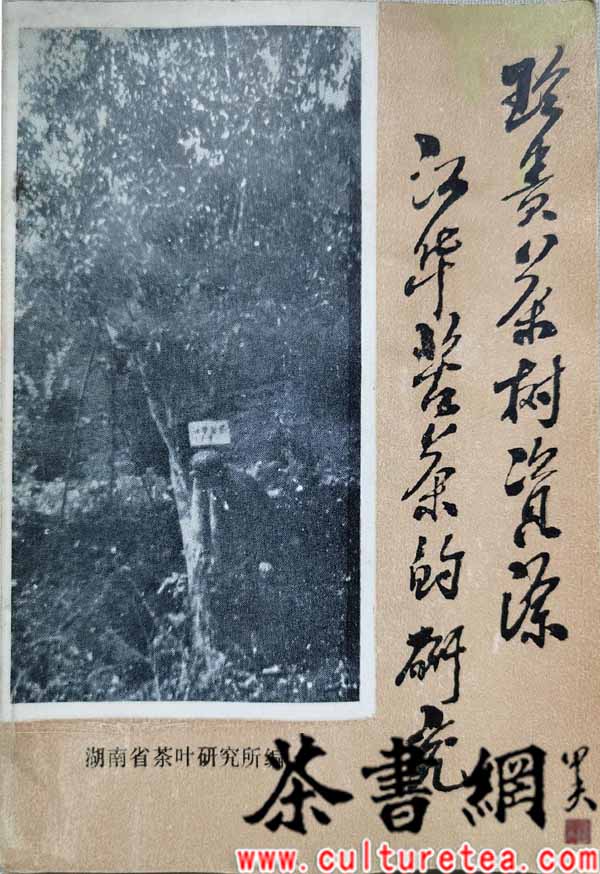 珍贵茶树资源
江华苦茶的研究
湖南省茶叶研究所编
茶書網
www.culturetea.com